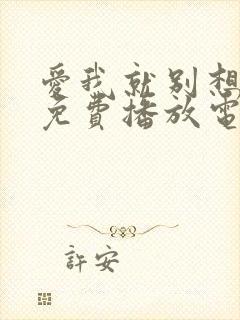 愛我就別想
免費播放電
許安